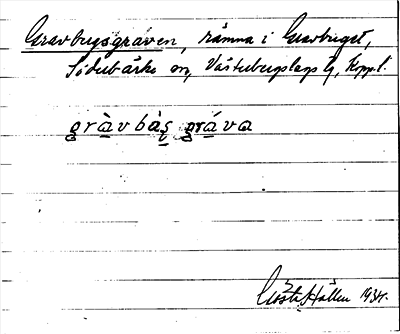 Gravbergsgraven, rämna i Gravberget,
Söderbärke sn, Västerbergslags lg, Kopp.l.
gràvbàs̨ gráva
Gösta Hållen 1934.